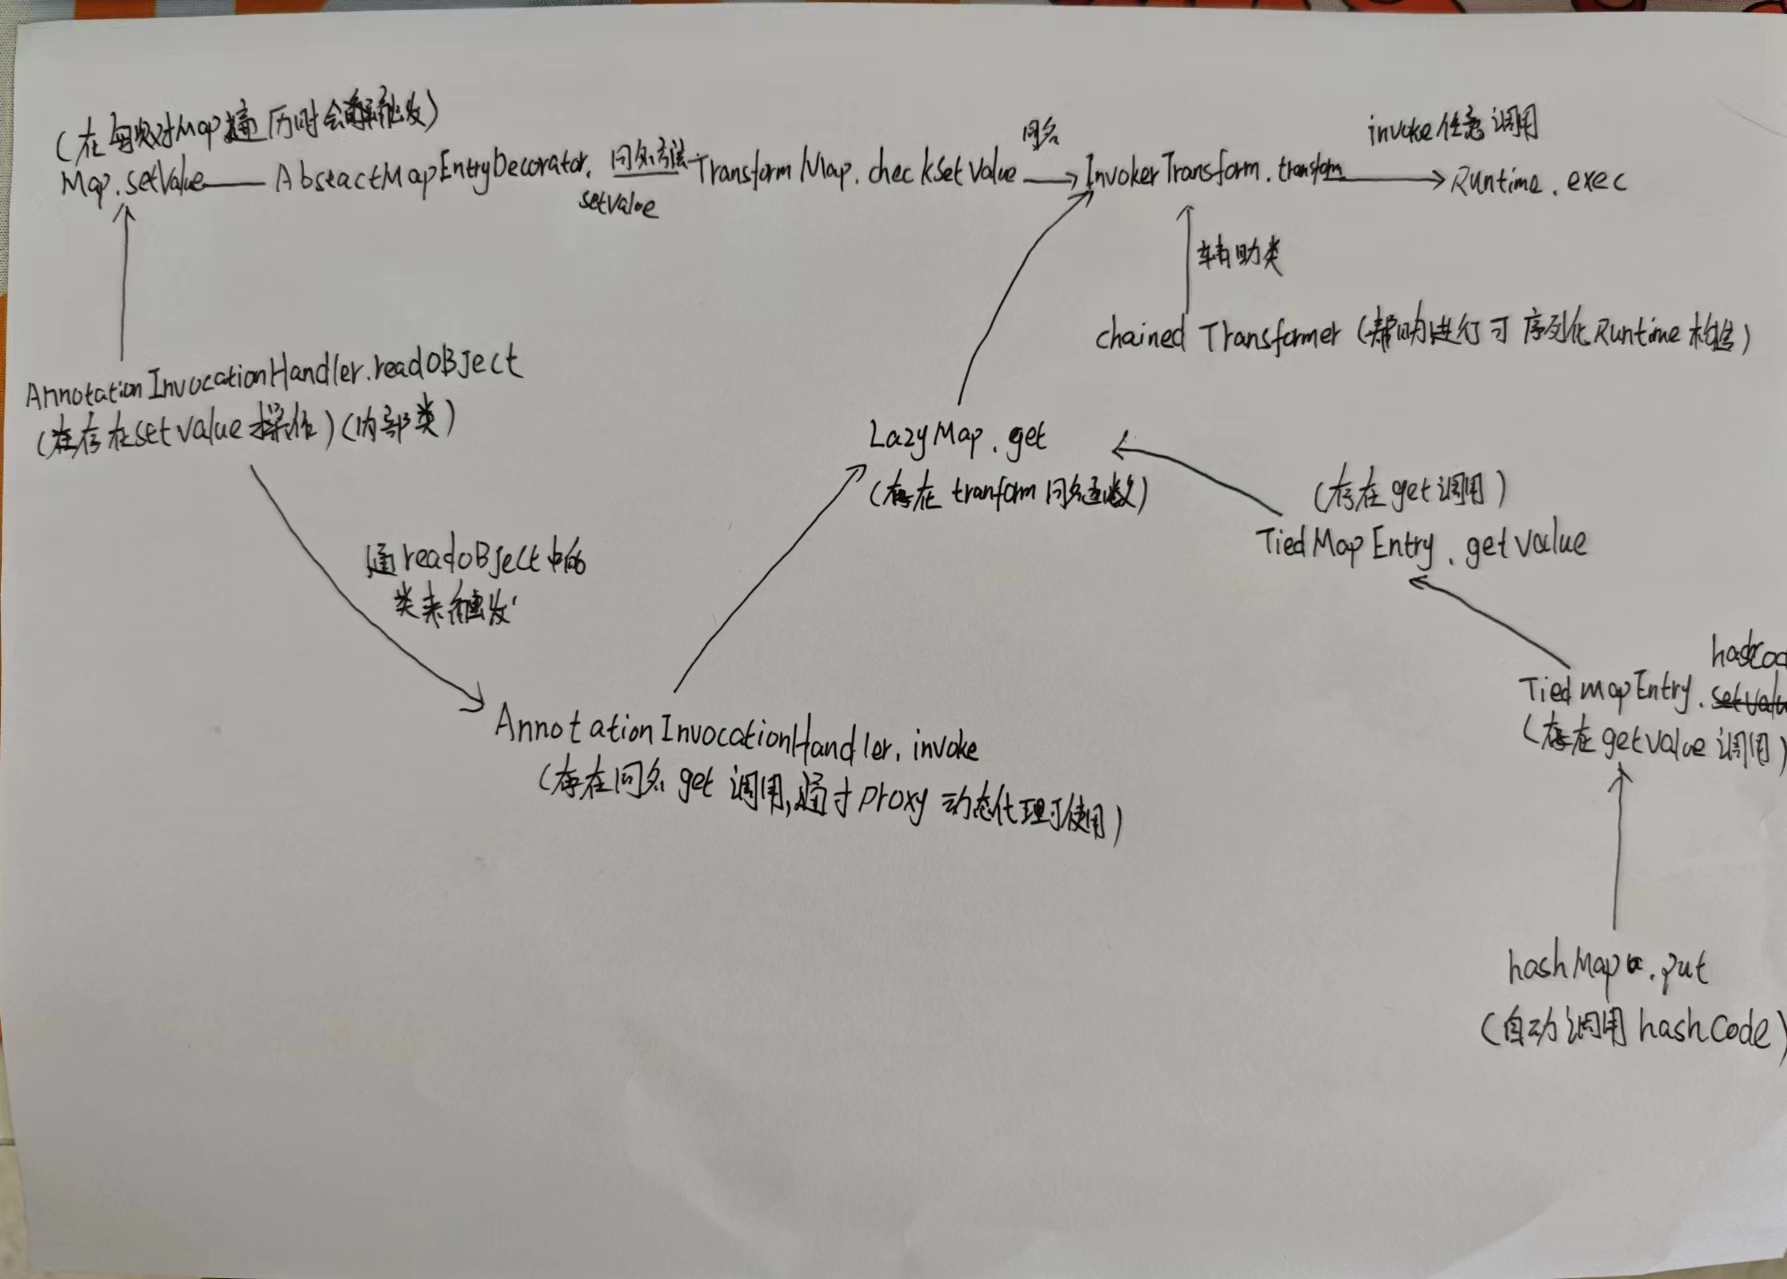 (在每次对Map遍历时会触发)
Map.setValue
AbstactMapEntryDecorator.
同名方法
setValue
TransformMap.checkSetValue
同名
InvokerTransform.transform
invoke任意调用
Runtime.exec
辅助类
chained Transformer (帮助进行可序列化Runtime构造)
AnnotationInvocationHandler.readOBJect
(存在setValue操作)(内部类)
LazyMap.get
(存在tranform同名函数)
(存在get调用)
TiedMapEntry.getValue
通readoBJect中的
类来触发
hashCod
TiedmapEntry.setValu
(存在getValue调用)
AnnotationInvocationHandler.invoke
(存在同名get调用,通过Proxy动态代理可使用)
hashMap.put
(自动调用hashCode)